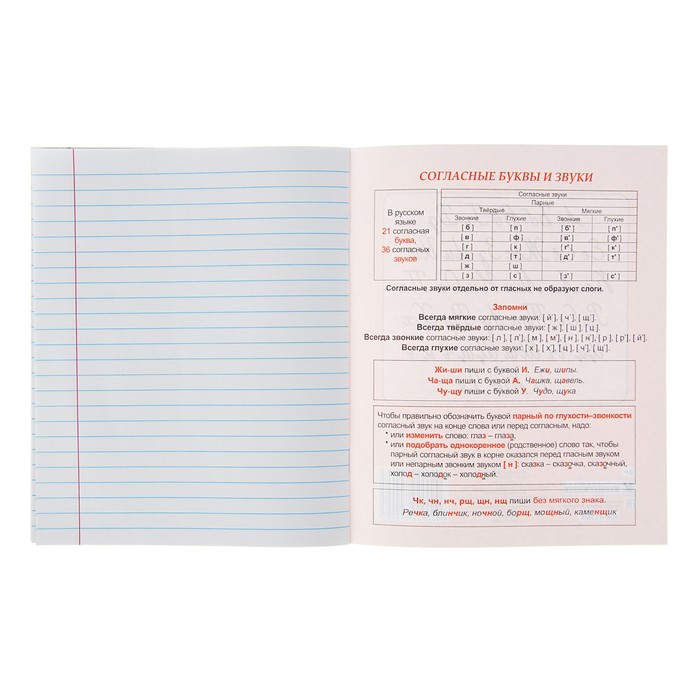 СОГЛАСНЫЕ БУКВЫ И ЗВУКИ
В русском
языке
21 согласная
буква,
36 согласных
звуков
Согласные звуки
Парные
Твёрдые Мягкие
Звонкие Глухие Звонкие Глухие
[ б ] [ п ] [ б' ] [ п' ]
[ в ] [ ф ] [ в' ] [ ф' ]
[ г ] [ к ] [ г' ] [ к' ]
[ д ] [ т ] [ д' ] [ т' ]
[ ж ] [ ш ]
[ з ] [ с ] [ з' ] [ с' ]
Согласные звуки отдельно от гласных не образуют слоги.
Запомни
Всегда мягкие согласные звуки: [ й' ], [ ч' ], [ щ' ].
Всегда твёрдые согласные звуки: [ ж ], [ ш ], [ ц ].
Всегда звонкие согласные звуки: [ л ], [ л' ], [ м ], [ м' ], [ н ], [ н' ], [ р ], [ р' ], [ й' ].
Всегда глухие согласные звуки: [ х ], [ х' ], [ ц ], [ ч' ], [ щ' ].
Жи-ши пиши с буквой И. Ежи, шипы.
Ча-ща пиши с буквой А. Чашка, щавель.
Чу-щу пиши с буквой У. Чудо, щука
Чтобы правильно обозначить буквой парный по глухости–звонкости
согласный звук на конце слова или перед согласным, надо:
• или изменить слово: глаз – глаза,
• или подобрать однокоренное (родственное) слово так, чтобы
парный согласный звук в корне оказался перед гласным звуком
или непарным звонким звуком [ н ]: сказка – сказочка, сказочный,
холод – холодок – холодный.
Чк, чн, нч, рщ, щн, нщ пиши без мягкого знака.
Речка, блинчик, ночной, борщ, мощный, каменщик